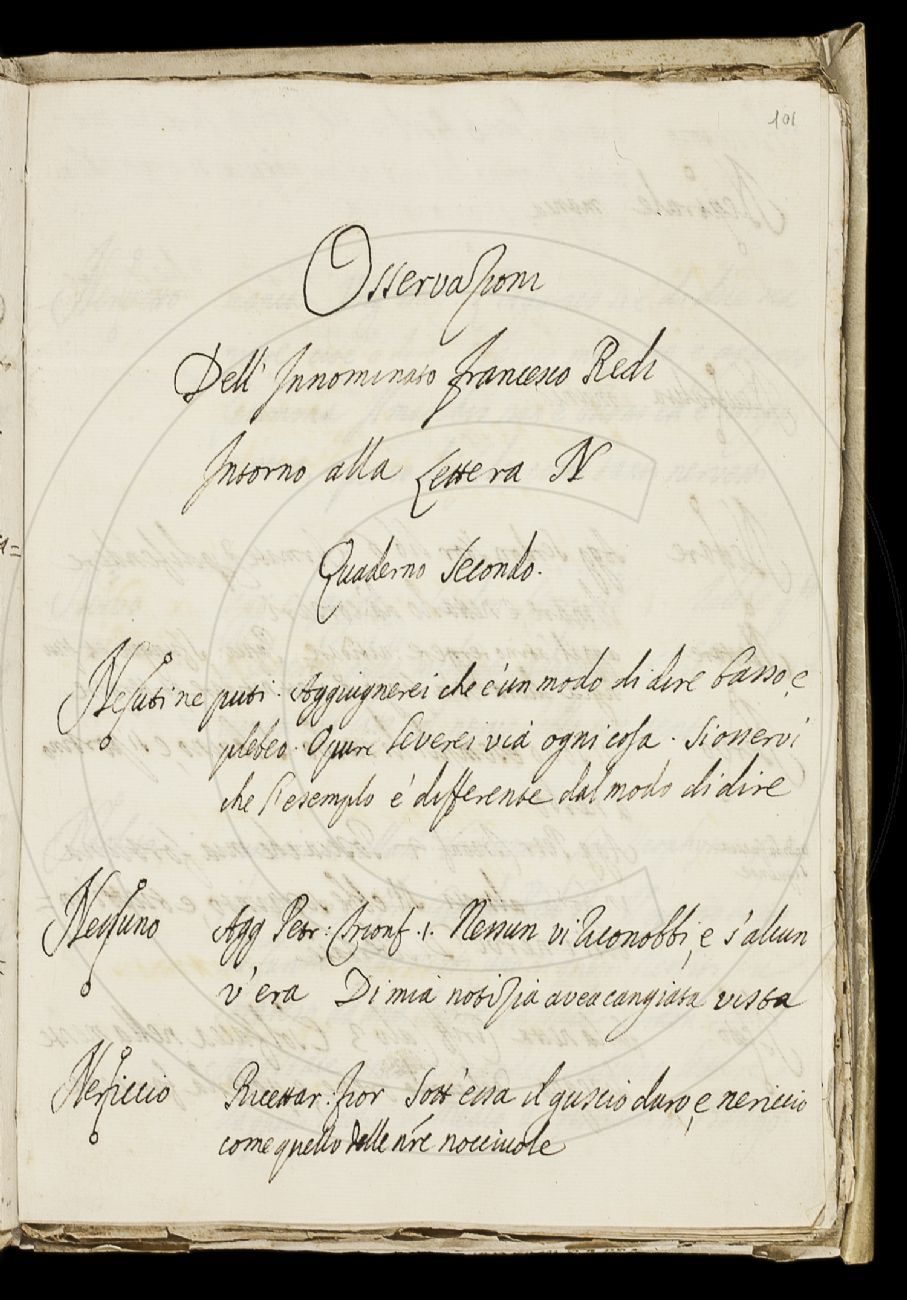 101
Osservazioni
Dell' Innominato Francesco Redi
Intorno alla Lettera N
Quaderno Secondo.
Ne puti ne puti. Aggiugnerei che è un modo di dire basso, e
plebeo. Opure leverei via ogni cosa. Si osservi
che l'esemplo è differente dal modo di dire
Nessuno Agg Petr: Trionf. 1. Nessun vi riconobbi, e s'alcun
v'era Di mia notizia avea cangiata vista
Nericcio Ricettar: fior Sott'essa il guscio duro, e nericcio
come quello delle nre nocciuole